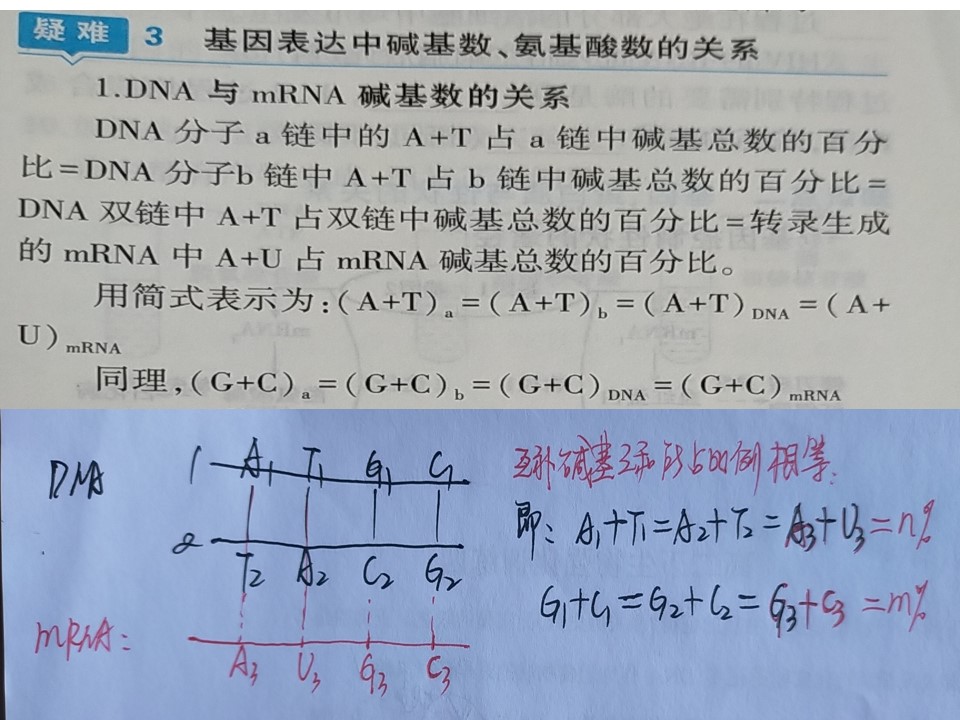 疑难 3 基因表达中碱基数、氨基酸数的关系
1.DNA 与 mRNA 碱基数的关系
DNA 分子 a 链中的 A+T 占 a 链中碱基总数的百分
比=DNA 分子b 链中 A+T 占 b 链中碱基总数的百分比=
DNA 双链中 A+T 占双链中碱基总数的百分比=转录生成
的 mRNA 中 A+U 占 mRNA 碱基总数的百分比。
用简式表示为:(A+T)a=(A+T)b=(A+T)DNA=(A+
U)mRNA
同理,(G+C)a=(G+C)b=(G+C)DNA=(G+C)mRNA
DNA 1 A1 T1 G1 C1
2
T2 A2 C2 G2
mRNA:
A3 U3 G3 C3
互补碱基之和所占比例相等:
即: A1+T1=A2+T2=A3+U3=n%
G1+C1=G2+C2=G3+C3=m%